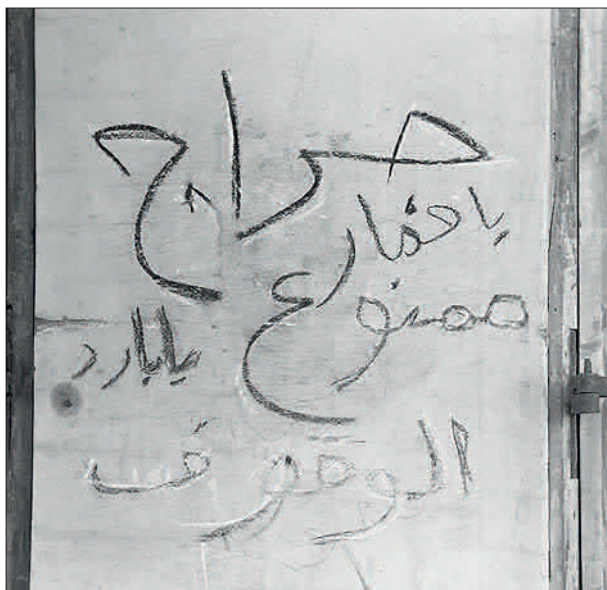 حراج
يا حمار
ممنوع
يا بارد
الوقوف